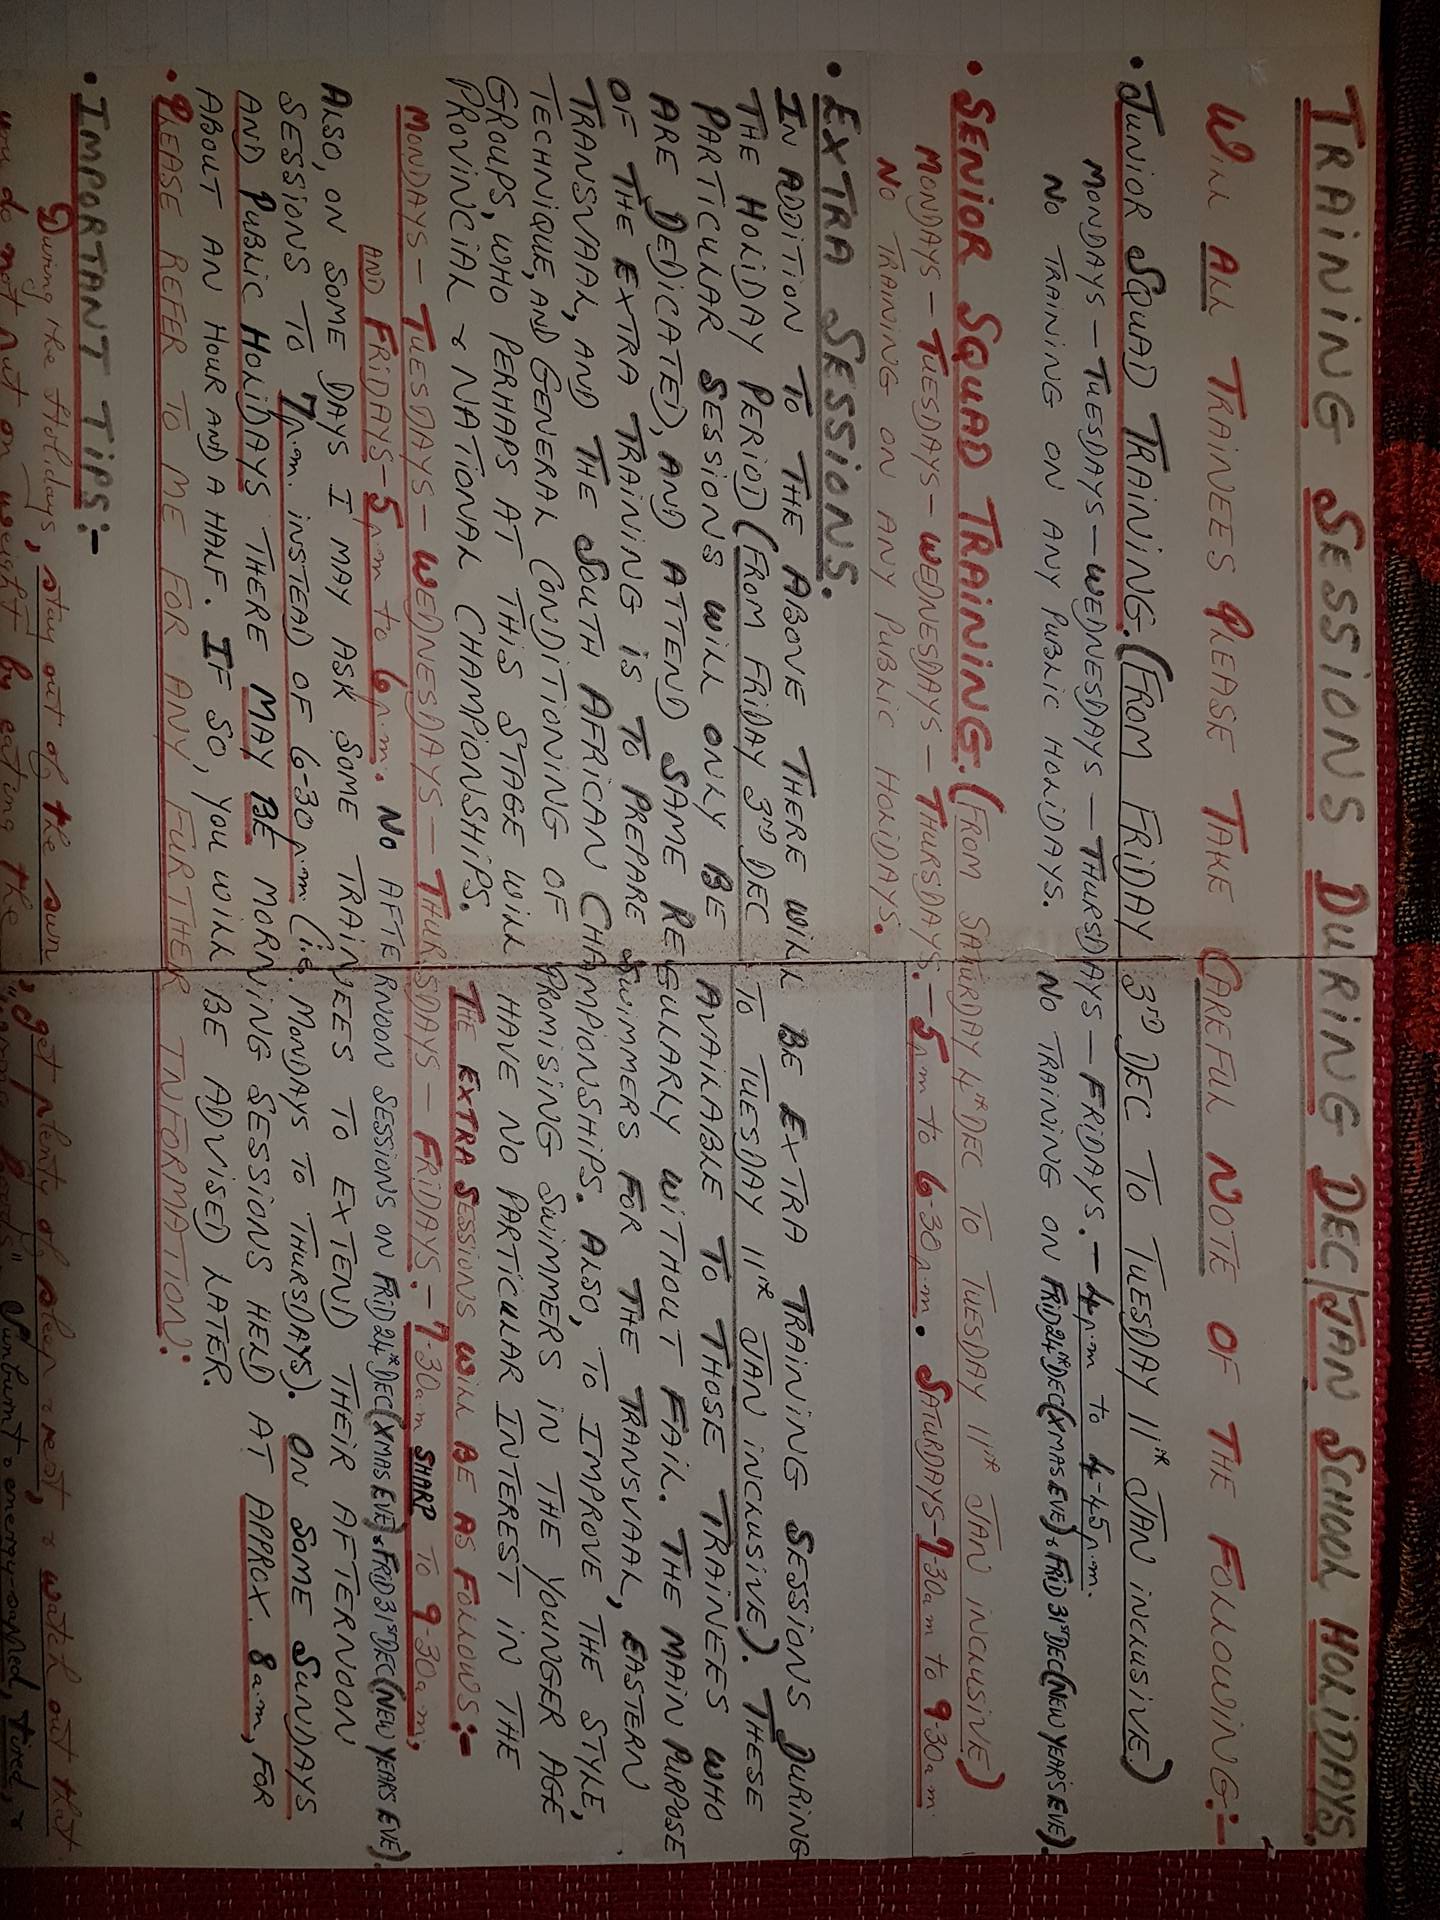 TRAINING SESSIONS DURING DEC/JAN SCHOOL HOLIDAYS.
WILL ALL TRAINEES PLEASE TAKE CAREFUL NOTE OF THE FOLLOWING:-
• JUNIOR SQUAD TRAINING. (FROM FRIDAY 3RD DEC TO TUESDAY 11TH JAN INCLUSIVE)
MONDAYS - TUESDAYS - WEDNESDAYS - THURSDAYS - FRIDAYS. - 4p.m to 4-45p.m.
NO TRAINING ON ANY PUBLIC HOLIDAYS. NO TRAINING ON FRID 24TH DEC (XMAS EVE) & FRID 31ST DEC (NEW YEARS EVE).
• SENIOR SQUAD TRAINING. (FROM SATURDAY 4TH DEC TO TUESDAY 11TH JAN INCLUSIVE)
MONDAYS - TUESDAYS - WEDNESDAYS - THURSDAYS. - 5pm to 6-30p.m. SATURDAYS - 7-30am to 9-30am.
NO TRAINING ON ANY PUBLIC HOLIDAYS.
• EXTRA SESSIONS.
IN ADDITION TO THE ABOVE THERE WILL BE EXTRA TRAINING SESSIONS DURING
THE HOLIDAY PERIOD (FROM FRIDAY 3RD DEC TO TUESDAY 11TH JAN INCLUSIVE). THESE
PARTICULAR SESSIONS WILL ONLY BE AVAILABLE TO THOSE TRAINEES WHO
ARE DEDICATED, AND ATTEND SAME REGULARLY WITHOUT FAIL. THE MAIN PURPOSE
OF THE EXTRA TRAINING IS TO PREPARE SWIMMERS FOR THE TRANSVAAL, EASTERN
TRANSVAAL, AND THE SOUTH AFRICAN CHAMPIONSHIPS. ALSO, TO IMPROVE THE STYLE,
TECHNIQUE, AND GENERAL CONDITIONING OF PROMISING SWIMMERS IN THE YOUNGER AGE
GROUPS, WHO PERHAPS AT THIS STAGE WILL HAVE NO PARTICULAR INTEREST IN THE
PROVINCIAL & NATIONAL CHAMPIONSHIPS. THE EXTRA SESSIONS WILL BE AS FOLLOWS:-
MONDAYS - TUESDAYS - WEDNESDAYS - THURSDAYS - FRIDAYS. - 7-30a.m SHARP TO 9-30a.m,
AND FRIDAYS - 5p.m to 6p.m. NO AFTERNOON SESSIONS ON FRID 24TH DEC (XMAS EVE) & FRID 31ST DEC (NEW YEARS EVE).
ALSO, ON SOME DAYS I MAY ASK SOME TRAINEES TO EXTEND THEIR AFTERNOON
SESSIONS TO 7p.m. INSTEAD OF 6-30p.m. (i.e. MONDAYS TO THURSDAYS). ON SOME SUNDAYS
AND PUBLIC HOLIDAYS THERE MAY BE MORNING SESSIONS HELD AT APPROX. 8a.m, FOR
ABOUT AN HOUR AND A HALF. IF SO, YOU WILL BE ADVISED LATER.
• PLEASE REFER TO ME FOR ANY FURTHER INFORMATION:
• IMPORTANT TIPS:-
During the Holidays, stay out of the sun, get plenty of sleep & rest, & watch out that
you do not put on weight by eating the Sunburnt & energy-sapped, tired, &